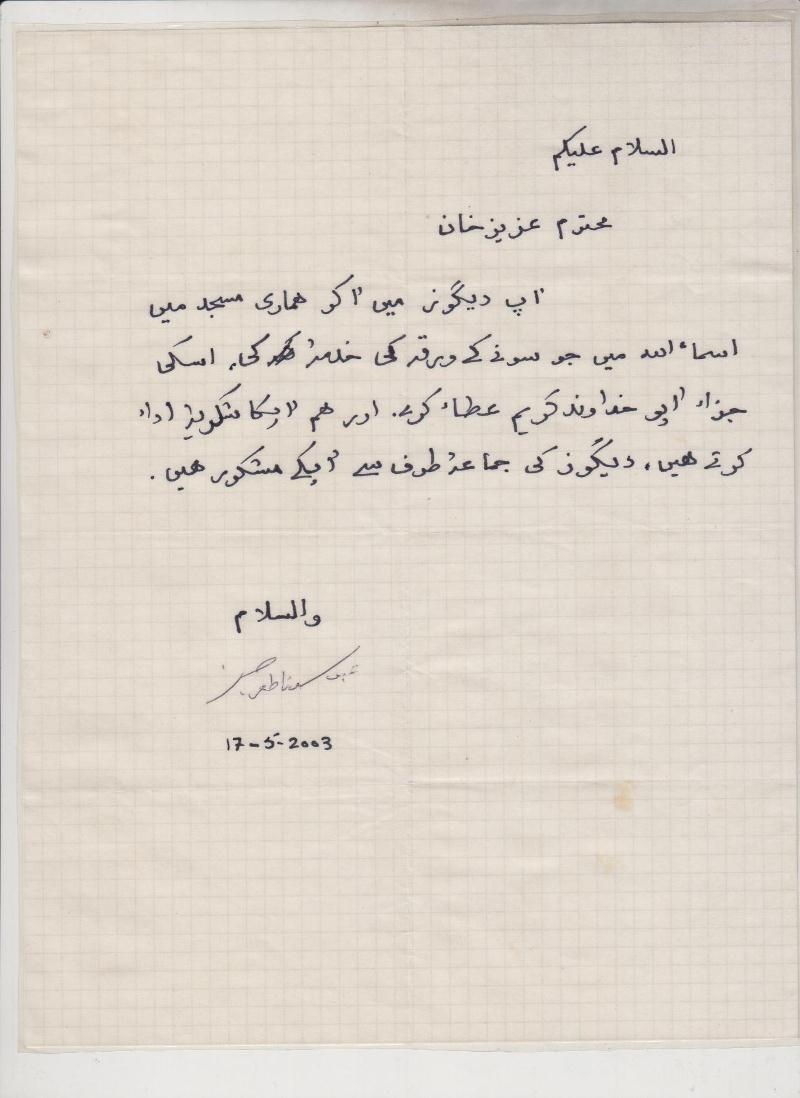 السلام علیکم
محترم عزیز خان
اپ دیگونر میں اکر ھماری مسجد میں
اسماء اللہ میں جو سونے کے ورقہ کی خدمۃ کی، اسکی
جزاء اپکو خداوند کریم عطاء کرے. اور ھم اپکا شکریۃ اداء
کرتے ھیں، دیگونر کی جماعۃ طرف سے اپکے مشکور ھیں.
والسلام
17-5-2003